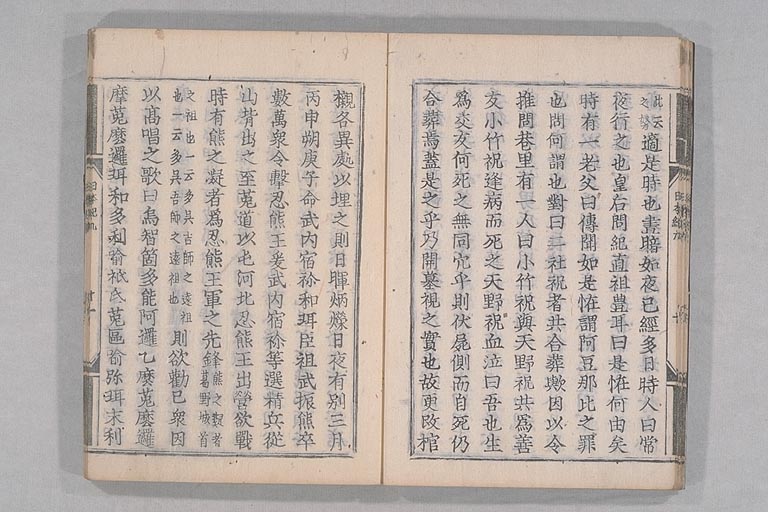 此云
之努
適是時也晝暗如夜已經多日時人曰常
夜行之也皇后問紀直祖豊耳曰是恠何由矣
時有一老父曰傳聞如是恠謂阿豆那比之罪
也問何謂也對曰二社祝者共合葬歟因以令
推問巷里有一人曰小竹祝與天野祝共爲善
友小竹祝逢病而死之天野祝血泣曰吾也生
爲交友何死之無同穴乎則伏屍側而自死仍
合葬焉蓋是之乎乃開墓視之實也故更改棺
櫬各異處以埋之則日暉炳爍日夜有別三月
丙申朔庚子命武内宿祢和珥臣祖武振熊率
數萬衆令擊忍熊王爰武内宿祢等選精兵從
山背出之至菟道以屯河北忍熊王出營欲戰
時有熊之凝者爲忍熊王軍之先鋒
熊之凝者
葛野城首
之祖也一云多呉吉師之遠祖
也一云多呉吉師之遠祖也
則欲勸己衆因
以高唱之歌曰烏智箇多能阿邏乙麽菟麽邏
摩菟麽邏珥和多利喩祇氐菟區喩弥珥末利
日本紀九